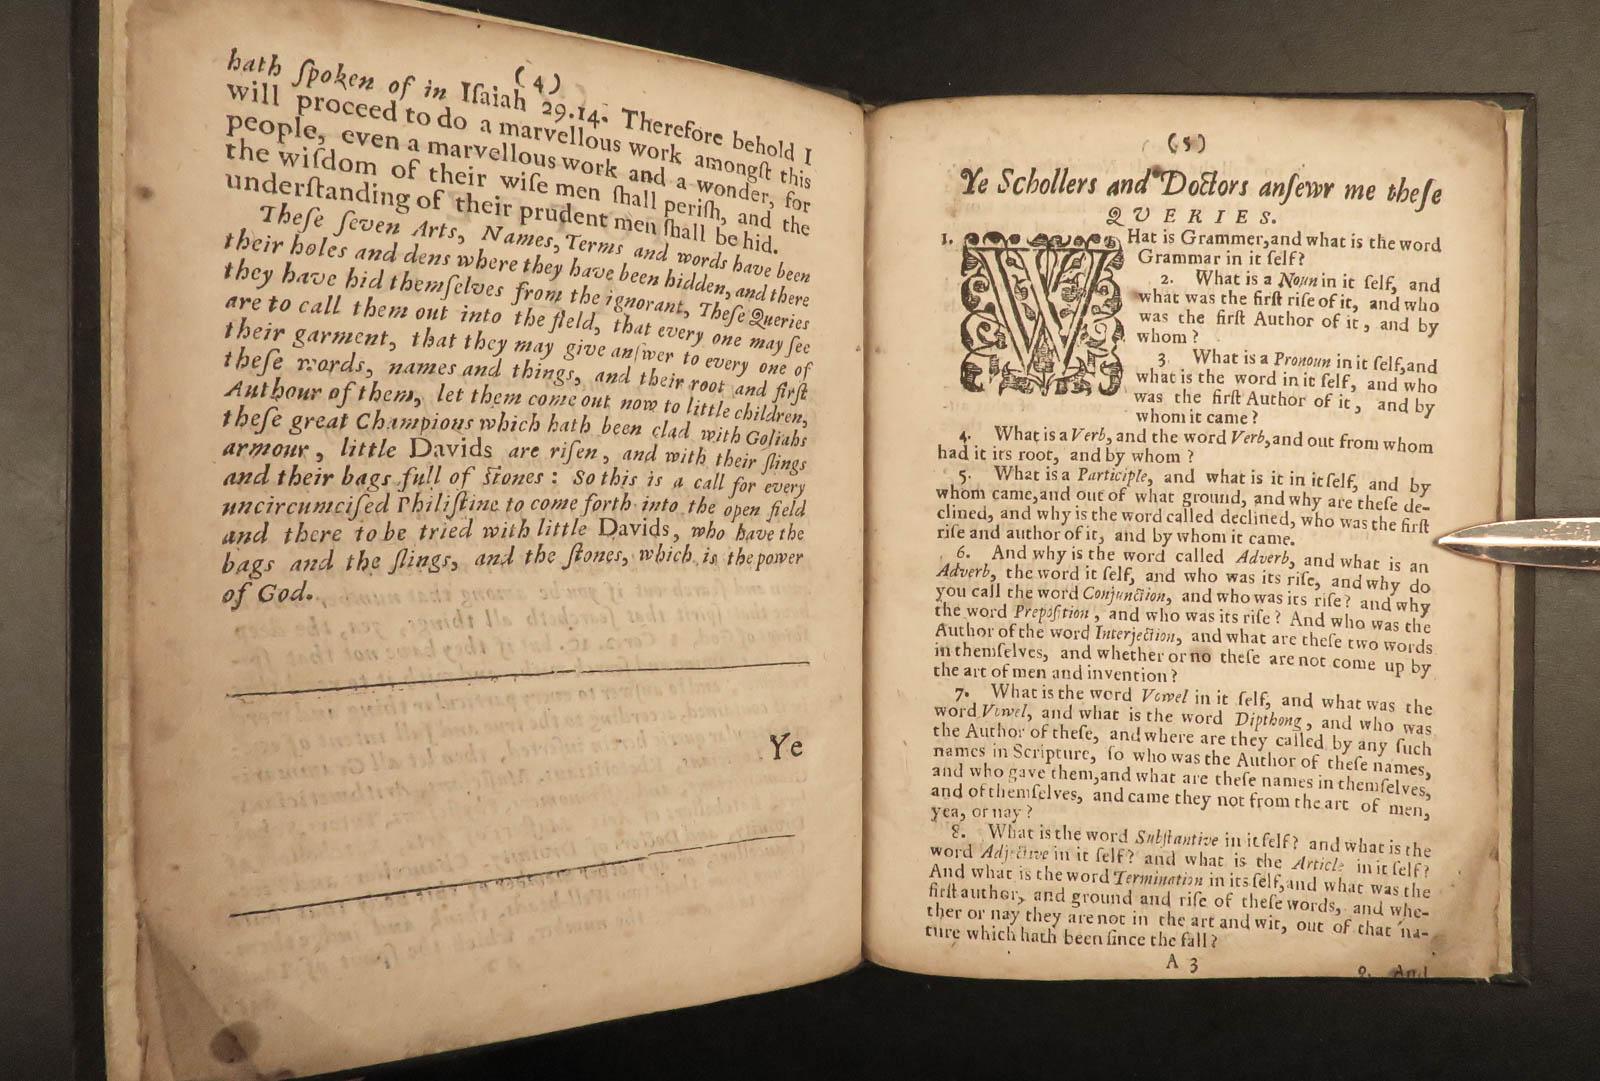 (4)
hath ſpoken of in Iſaiah 29.14. Therefore behold I
will proceed to do a marvellous work amongſt this
people, even a marvellous work and a wonder, for
the wiſdom of their wiſe men ſhall periſh, and the
underſtanding of their prudent men ſhall be hid.
Theſe ſeven Arts, Names, Terms and words have been
their holes and dens where they have been hidden, and there
they have hid themſelves from the ignorant, Theſe Queries
are to call them out into the field, that every one may ſee
their garment, that they may give anſwer to every one of
theſe words, names and things, and their root and firſt
Authour of them, let them come out now to little children,
theſe great Champions which hath been clad with Goliahs
armour, little Davids are riſen, and with their ſlings
and their bags full of ſtones: So this is a call for every
uncircumciſed Philiſtine to come forth into the open field
and there to be tried with little Davids, who have the
bags and the ſlings, and the ſtones, which is the power
of God.
Ye
(5)
Ye Schollers and Doctors anſewr me theſe
QUERIES.
1. WHat is Grammer, and what is the word
Grammar in it ſelf?
2. What is a Noun in it ſelf, and
what was the firſt riſe of it, and who
was the firſt Author of it, and by
whom?
3. What is a Pronoun in it ſelf, and
what is the word in it ſelf, and who
was the firſt Author of it, and by
whom it came?
4. What is a Verb, and the word Verb, and out from whom
had it its root, and by whom?
5. What is a Participle, and what is it in itſelf, and by
whom came, and out of what ground, and why are theſe de-
clined, and why is the word called declined, who was the firſt
riſe and author of it, and by whom it came.
6. And why is the word called Adverb, and what is an
Adverb, the word it ſelf, and who was its riſe, and why do
you call the word Conjunction, and who was its riſe? and why
the word Prepoſition, and who was its riſe? And who was the
Author of the word Interjection, and what are theſe two words
in themſelves, and whether or no theſe are not come up by
the art of men and invention?
7. What is the word Vowel in it ſelf, and what was the
word Vowel, and what is the word Dipthong, and who was
the Author of theſe, and where are they called by any ſuch
names in Scripture, ſo who was the Author of theſe names,
and who gave them, and what are theſe names in themſelves,
and of themſelves, and came they not from the art of men,
yea, or nay?
8. What is the word Subſtantive in itſelf? and what is the
word Adjective in it ſelf? and what is the Article in it ſelf?
And what is the word Termination in its ſelf, and what was the
firſt author, and ground and riſe of theſe words, and whe-
ther or nay they are not in the art and wit, out of that na-
ture which hath been ſince the fall?
A 3
9. And